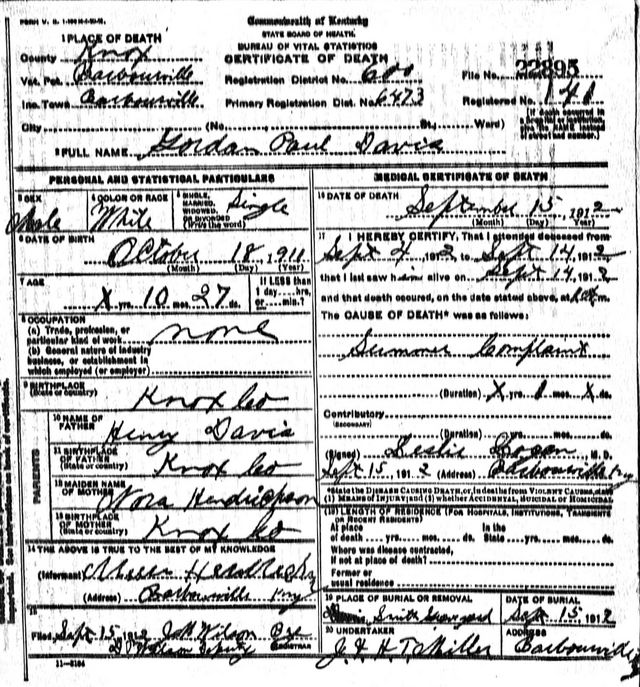 FORM V. S.
Commonwealth of Kentucky
STATE BOARD OF HEALTH.
BUREAU OF VITAL STATISTICS
CERTIFICATE OF DEATH
1 PLACE OF DEATH
County Knox
Vot. Pct. Barbourville
Inc. Town Barbourville
City
Registration District No. 600
Primary Registration Dist. No. 6473
File No. 22895
Registered No. 141
(No. St., Ward)
(If death occurred in a hospital or institution, give its NAME instead of street and number.)
2 FULL NAME Gordan Paul Davis
PERSONAL AND STATISTICAL PARTICULARS
3 SEX Male
4 COLOR OR RACE White
5 SINGLE, MARRIED, WIDOWED, OR DIVORCED (Write the word) Single
6 DATE OF BIRTH October 18, 1911
(Month) (Day) (Year)
7 AGE X yrs. 10 mos. 27 ds.
If LESS than 1 day....hrs. or....min.?
8 OCCUPATION
(a) Trade, profession, or particular kind of work none
(b) General nature of industry business, or establishment in which employed (or employer)
9 BIRTHPLACE (State or country) Knox Co
PARENTS
10 NAME OF FATHER Henry Davis
11 BIRTHPLACE OF FATHER (State or country) Knox Co
12 MAIDEN NAME OF MOTHER Nora Hendrickson
13 BIRTHPLACE OF MOTHER (State or country) Knox Co
14 THE ABOVE IS TRUE TO THE BEST OF MY KNOWLEDGE
(Informant)
(Address) Barbourville Ky
15
Filed Sept 15, 1912 Wilson
REGISTRAR
MEDICAL CERTIFICATE OF DEATH
16 DATE OF DEATH September 15, 1912
(Month) (Day) (Year)
17 I HEREBY CERTIFY, That I attended deceased from
Sept 4, 1912 to Sept 14, 1912
that I last saw him alive on Sept 14, 1912
and that death occured, on the date stated above, at m.
The CAUSE OF DEATH* was as follows:
Summer Complaint
(Duration) X yrs. 1 mos. X ds.
Contributory
(SECONDARY)
(Duration) yrs. mos. ds.
(Signed) Leslie Logan M. D.
Sept 15, 1912 (Address) Barbourville Ky
*State the DISEASE CAUSING DEATH, or, in deaths from VIOLENT CAUSES, state (1) MEANS OF INJURY; and (2) whether ACCIDENTAL, SUICIDAL or HOMICIDAL
18 LENGTH OF RESIDENCE (FOR HOSPITALS, INSTITUTIONS, TRANSIENTS OR RECENT RESIDENTS)
At place of death yrs. mos. ds. In the State yrs. mos. ds.
Where was disease contracted, If not at place of death?
Former or usual residence
19 PLACE OF BURIAL OR REMOVAL Smith Graveyard
DATE OF BURIAL Sept 15, 1912
20 UNDERTAKER J. & H. T. Miller
ADDRESS Barbourville
11-3184